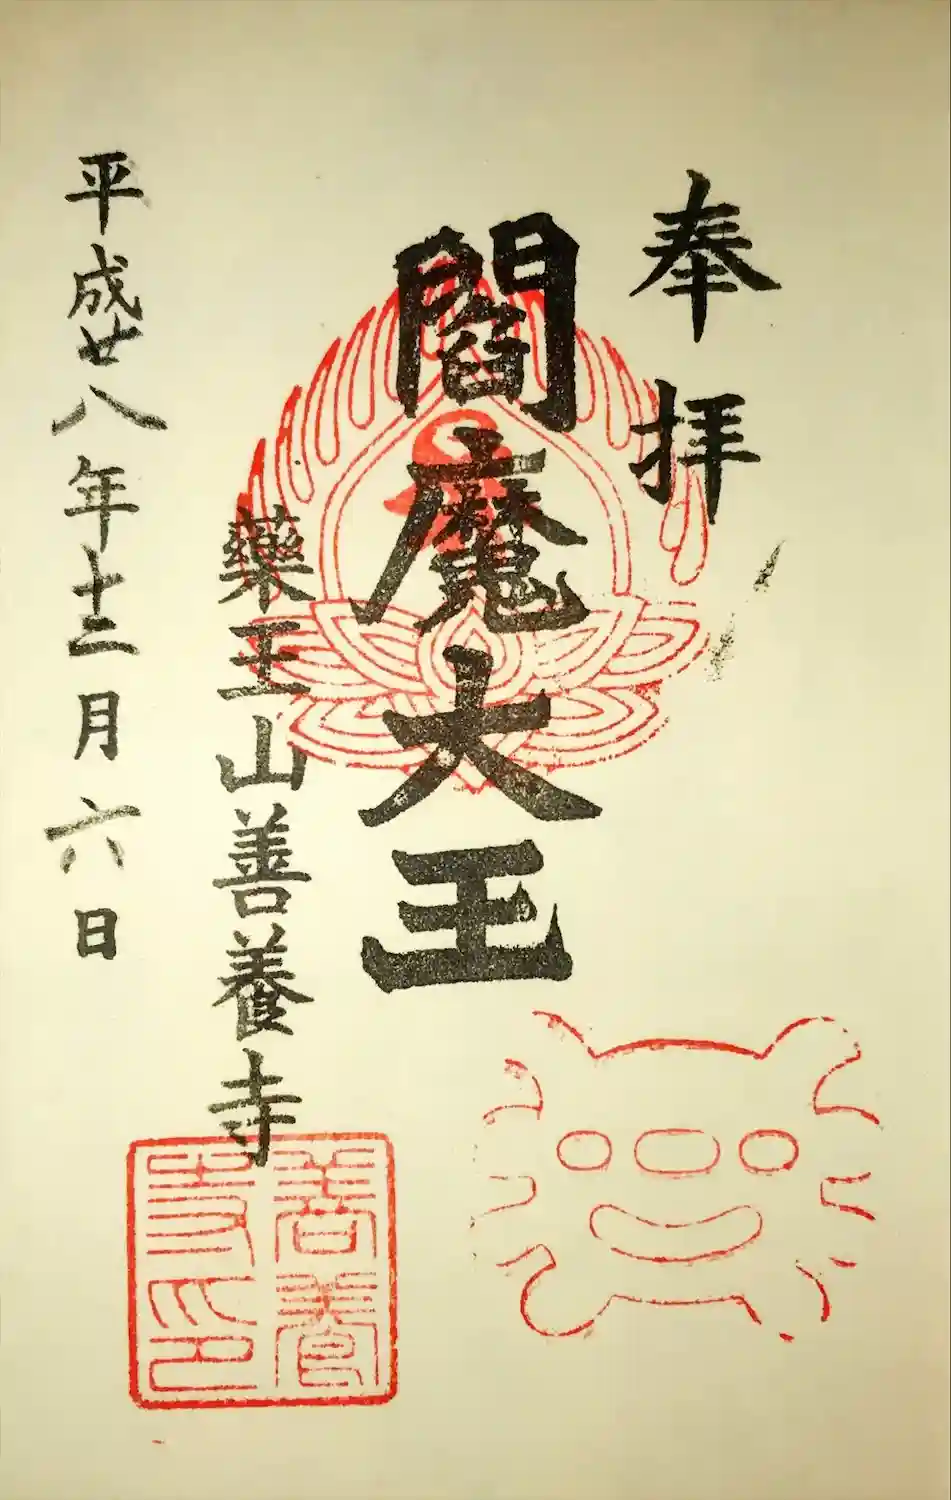 奉拝
閻魔大王
藥王山善養寺
平成廿八年十二月六日
善養寺印